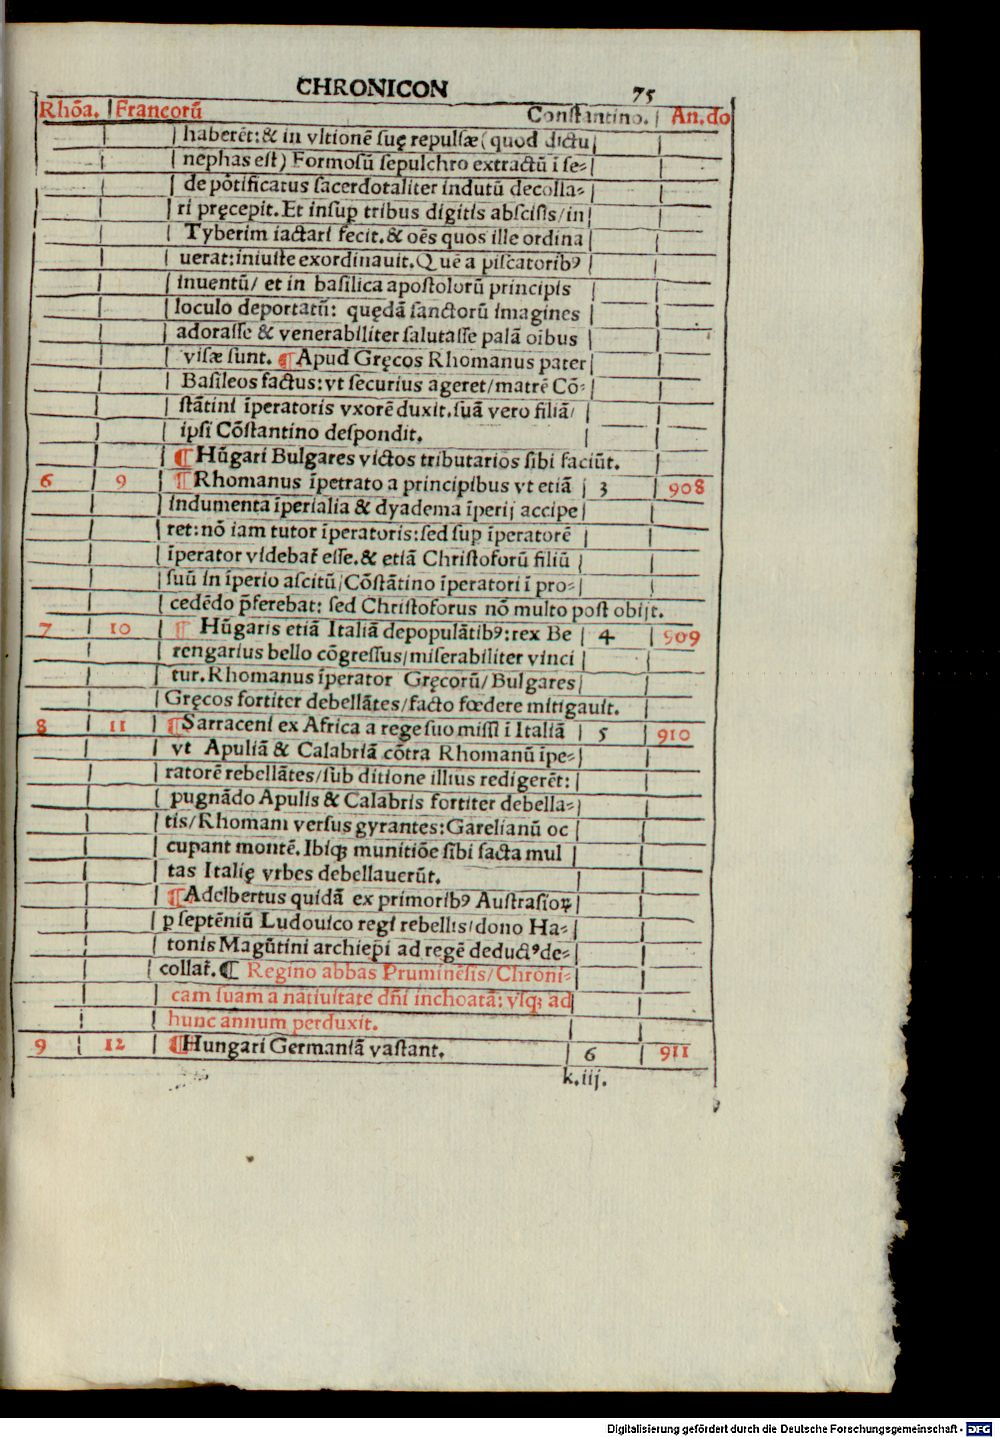 CHRONICON 75
Rhõa. Francorũ Constantino. An.do
haberẽt:& in vltionẽ suę repulsæ(quod dictu
nephas est) Formosũ sepulchro extractũ ĩ se-
de põtificatus sacerdotaliter indutũ decolla-
ri pręcepit. Et insuꝑ tribus digitis abscisis/in
Tyberim iactari fecit.& oẽs quos ille ordina
uerat:iniuste exordinauit. Quẽ a piscatoribꝰ
inuentũ/ et in basilica apostolorũ principis
loculo deportatũ: quędã sanctorũ imagines
adorasse & venerabiliter salutasse palã oĩbus
visæ sunt. ¶Apud Gręcos Rhomanus pater
Basileos factus:vt securius ageret/matrẽ Cõ-
stãtini ĩperatoris vxorẽ duxit.suã vero filiã/
ipsi Cõstantino despondit.
¶Hũgari Bulgares victos tributarios sibi faciũt.
6 9 ¶Rhomanus ĩpetrato a principibus vt etiã 3 908
indumenta ĩperialia & dyadema ĩperij accipe
ret:nõ iam tutor ĩperatoris:sed suꝑ ĩperatorẽ
ĩperator videbat̃ esse.& etiã Christoforũ filiũ
suũ in ĩperio ascitũ/Cõstãtino ĩperatori ĩ pro-
cedẽdo p̃ferebat: sed Christoforus nõ multo post obijt.
7 10 ¶ Hũgaris etiã Italiã depopulãtibꝰ:rex Be 4 909
rengarius bello cõgressus/miserabiliter vinci
tur.Rhomanus ĩperator Gręcorũ/Bulgares
Gręcos fortiter debellãtes/facto fœdere mitigauit.
8 11 ¶Sarraceni ex Africa a rege suo missi ĩ Italiã 5 910
vt Apuliã & Calabriã cõtra Rhomanũ ĩpe-
ratorẽ rebellãtes/sub ditione illius redigerẽt:
pugnãdo Apulis & Calabris fortiter debella-
tis/Rhomam versus gyrantes:Garelianũ oc
cupant montẽ. Ibiqꝫ munitiõe sibi facta mul
tas Italię vrbes debellauerũt.
¶Adelbertus quidã ex primoribꝰ Austrasioꝝ
ꝑ septẽniũ Ludouico regi rebellis/dono Ha-
tonis Magũtini archiep̃i ad regẽ deductꝰde-
collat̃. ¶ Regino abbas Pruminẽsis/Chroni-
cam suam a natiuitate dñi inchoatã: vsqꝫ ad
hunc annum perduxit.
9 12 ¶Hungari Germaniã vastant. 6 911
k.iij.
Digitalisierung gefördert durch die Deutsche Forschungsgemeinschaft - DFG